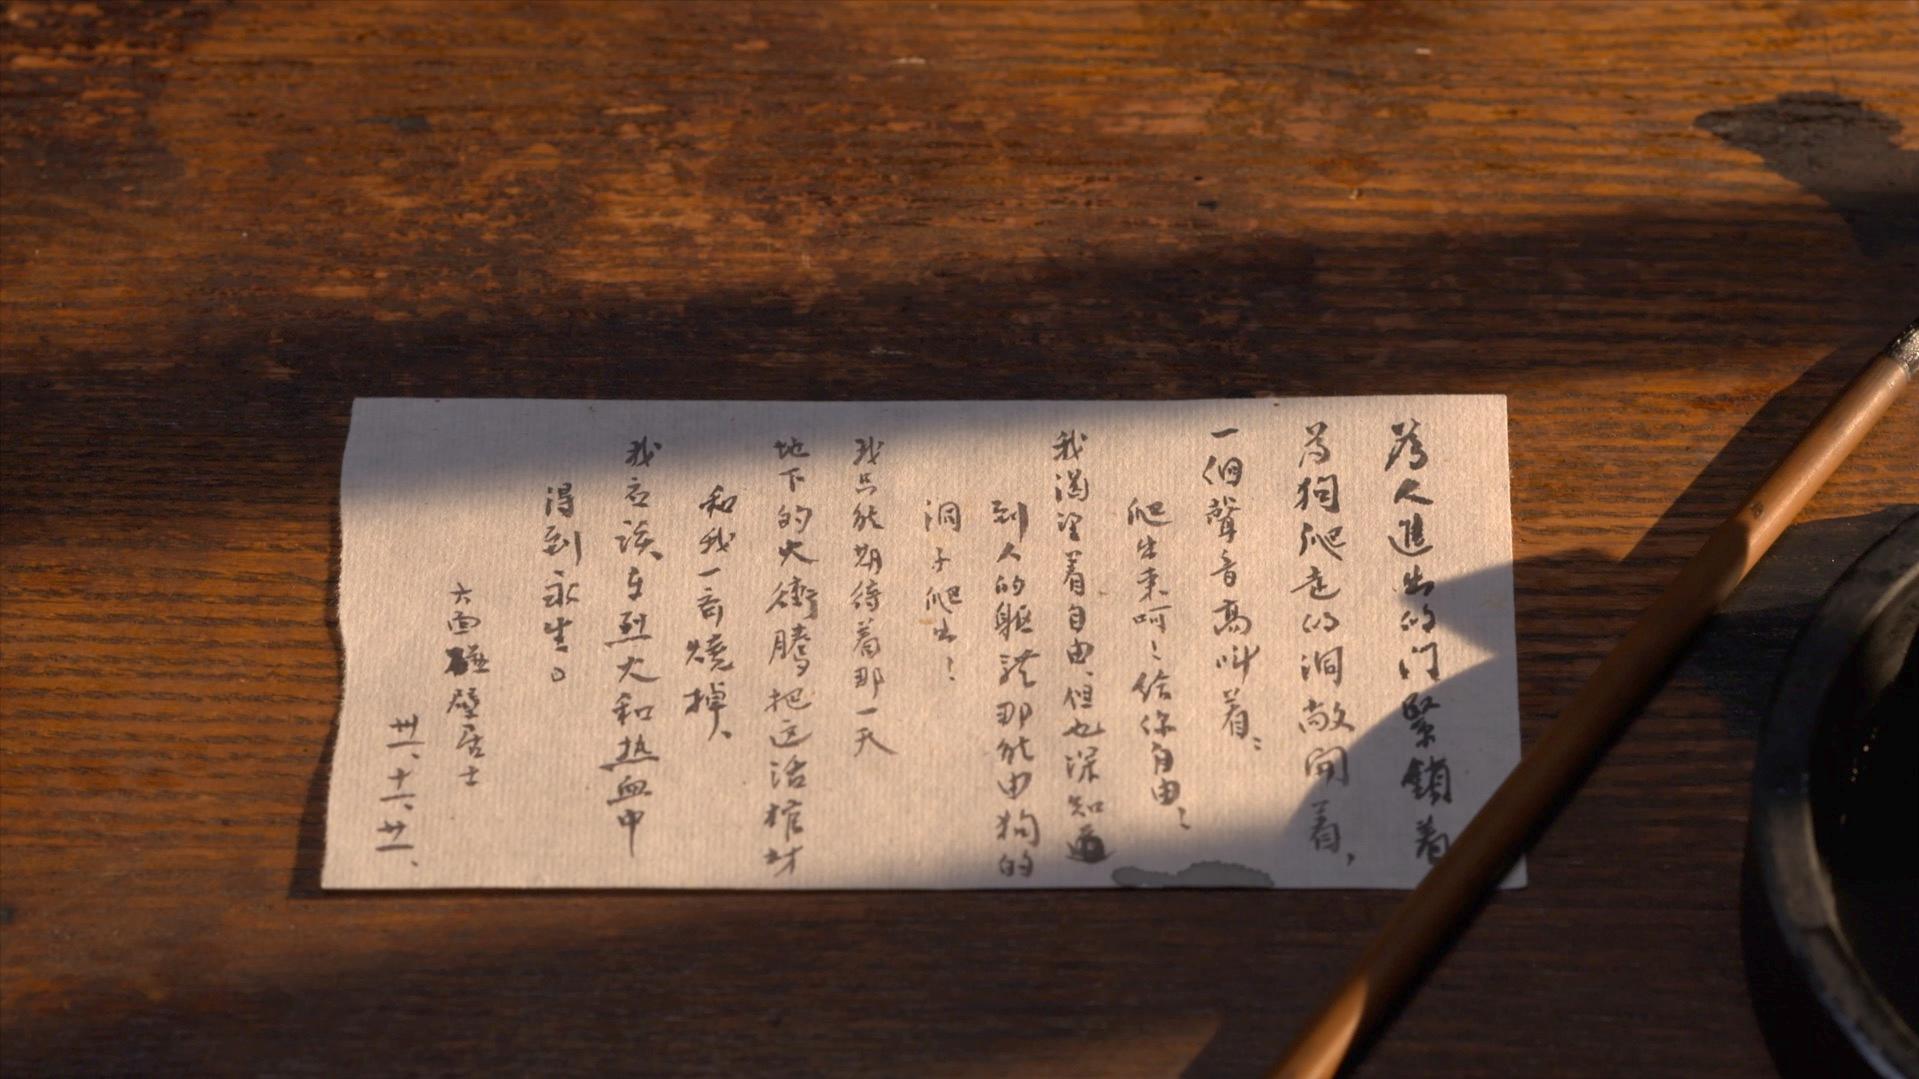 為人進出的门緊鎖着
為狗爬走的洞敞開着，
一個聲音高叫着：
爬出来呵！给你自由！
我渴望着自由、但也深知道
到人的軀體那能由狗的
洞子爬出！
我只能期待着那一天
地下的火衝騰把这活棺材
和我一齊燒掉、
我应该在烈火和热血中
得到永生。
六面碰壁居士
卅一、十一、廿一、